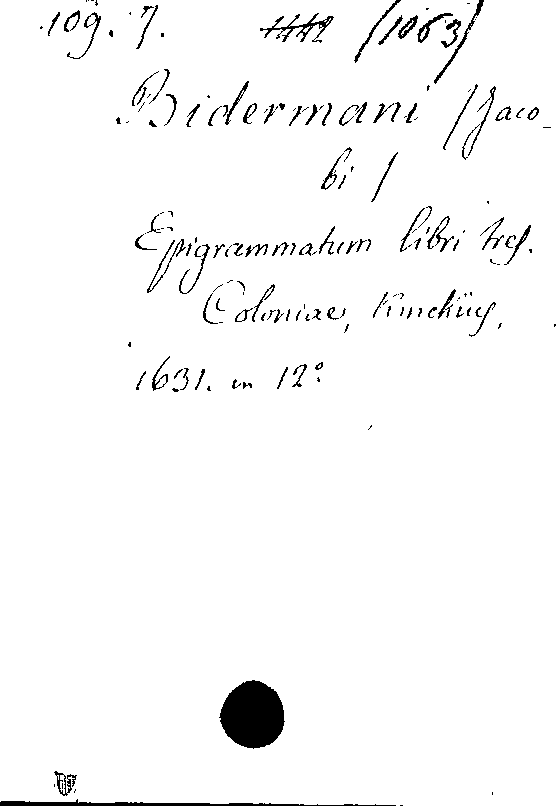 109. 7. 1442 (1063)
Bidermani /Jaco-
bi /
Epigrammatum libri tres.
Coloniae, Kinckius,
1631. in 12º